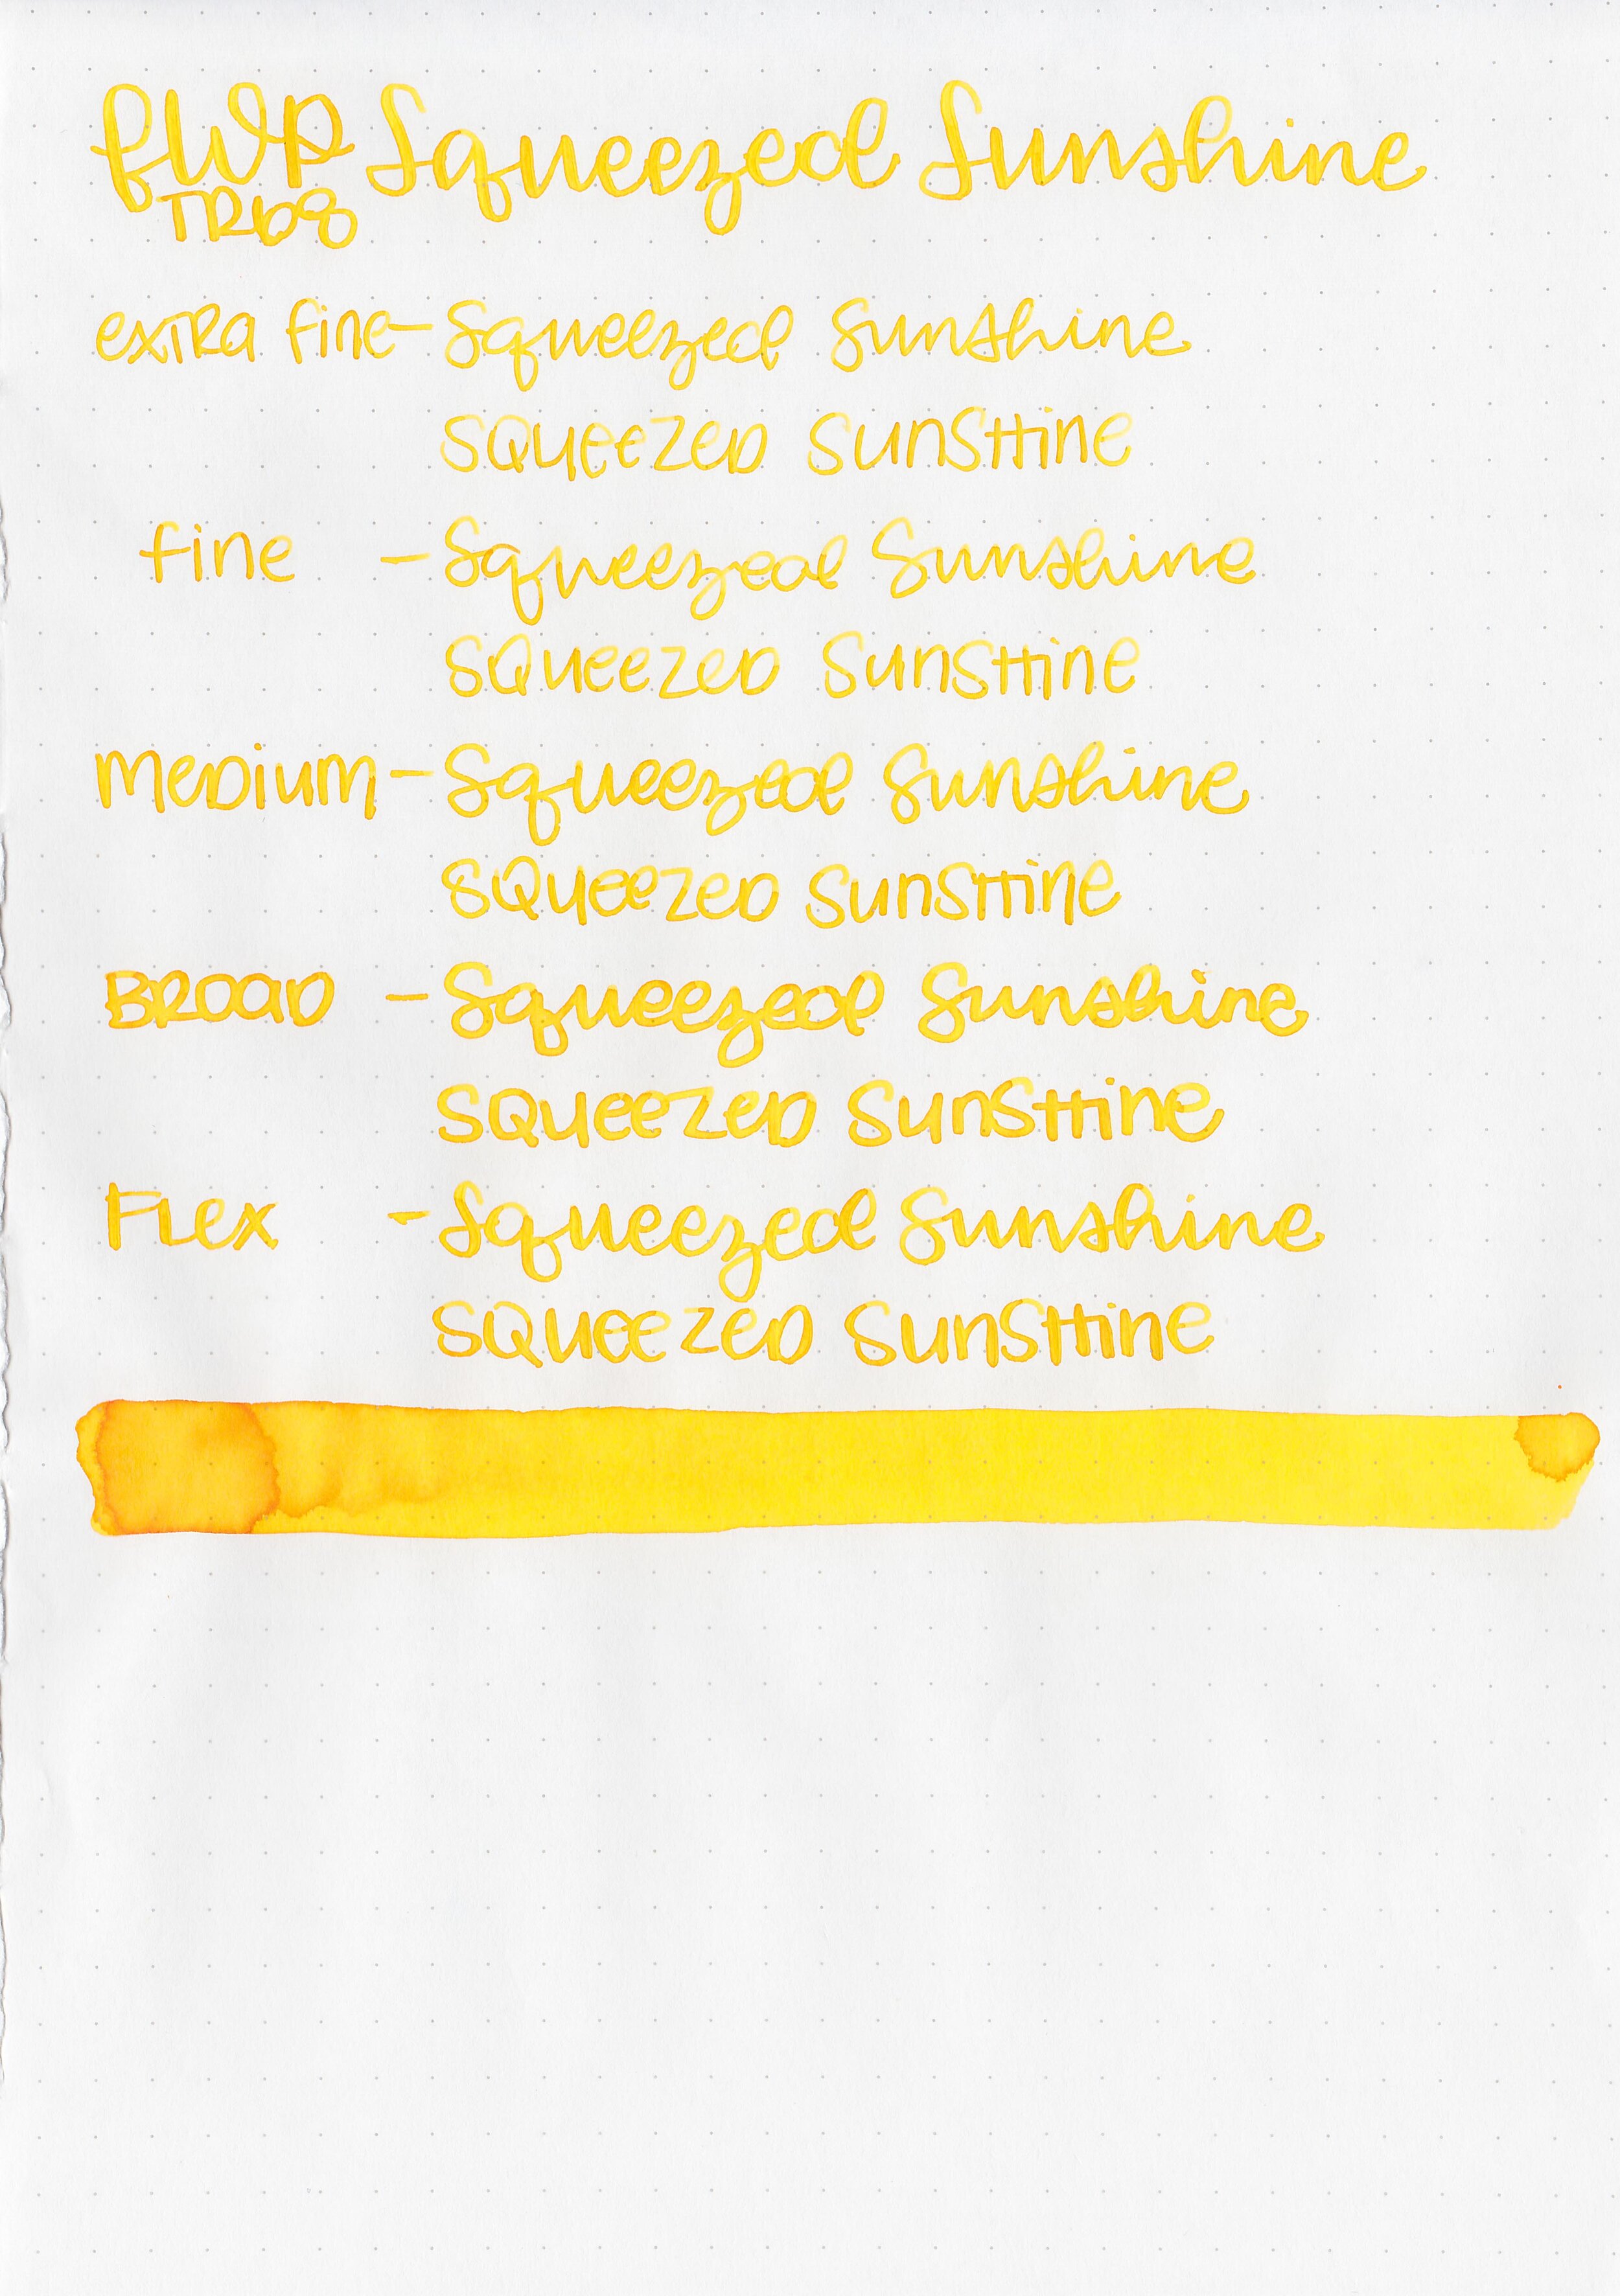 FWP Squeezed Sunshine
TR68
extra fine - Squeezed Sunshine
SQUEEZED SUNSHINE
fine - Squeezed Sunshine
SQUEEZED SUNSHINE
MEDIUM - Squeezed Sunshine
SQUEEZED SUNSHINE
BROAD - Squeezed Sunshine
SQUEEZED SUNSHINE
FLEX - Squeezed Sunshine
SQUEEZED SUNSHINE